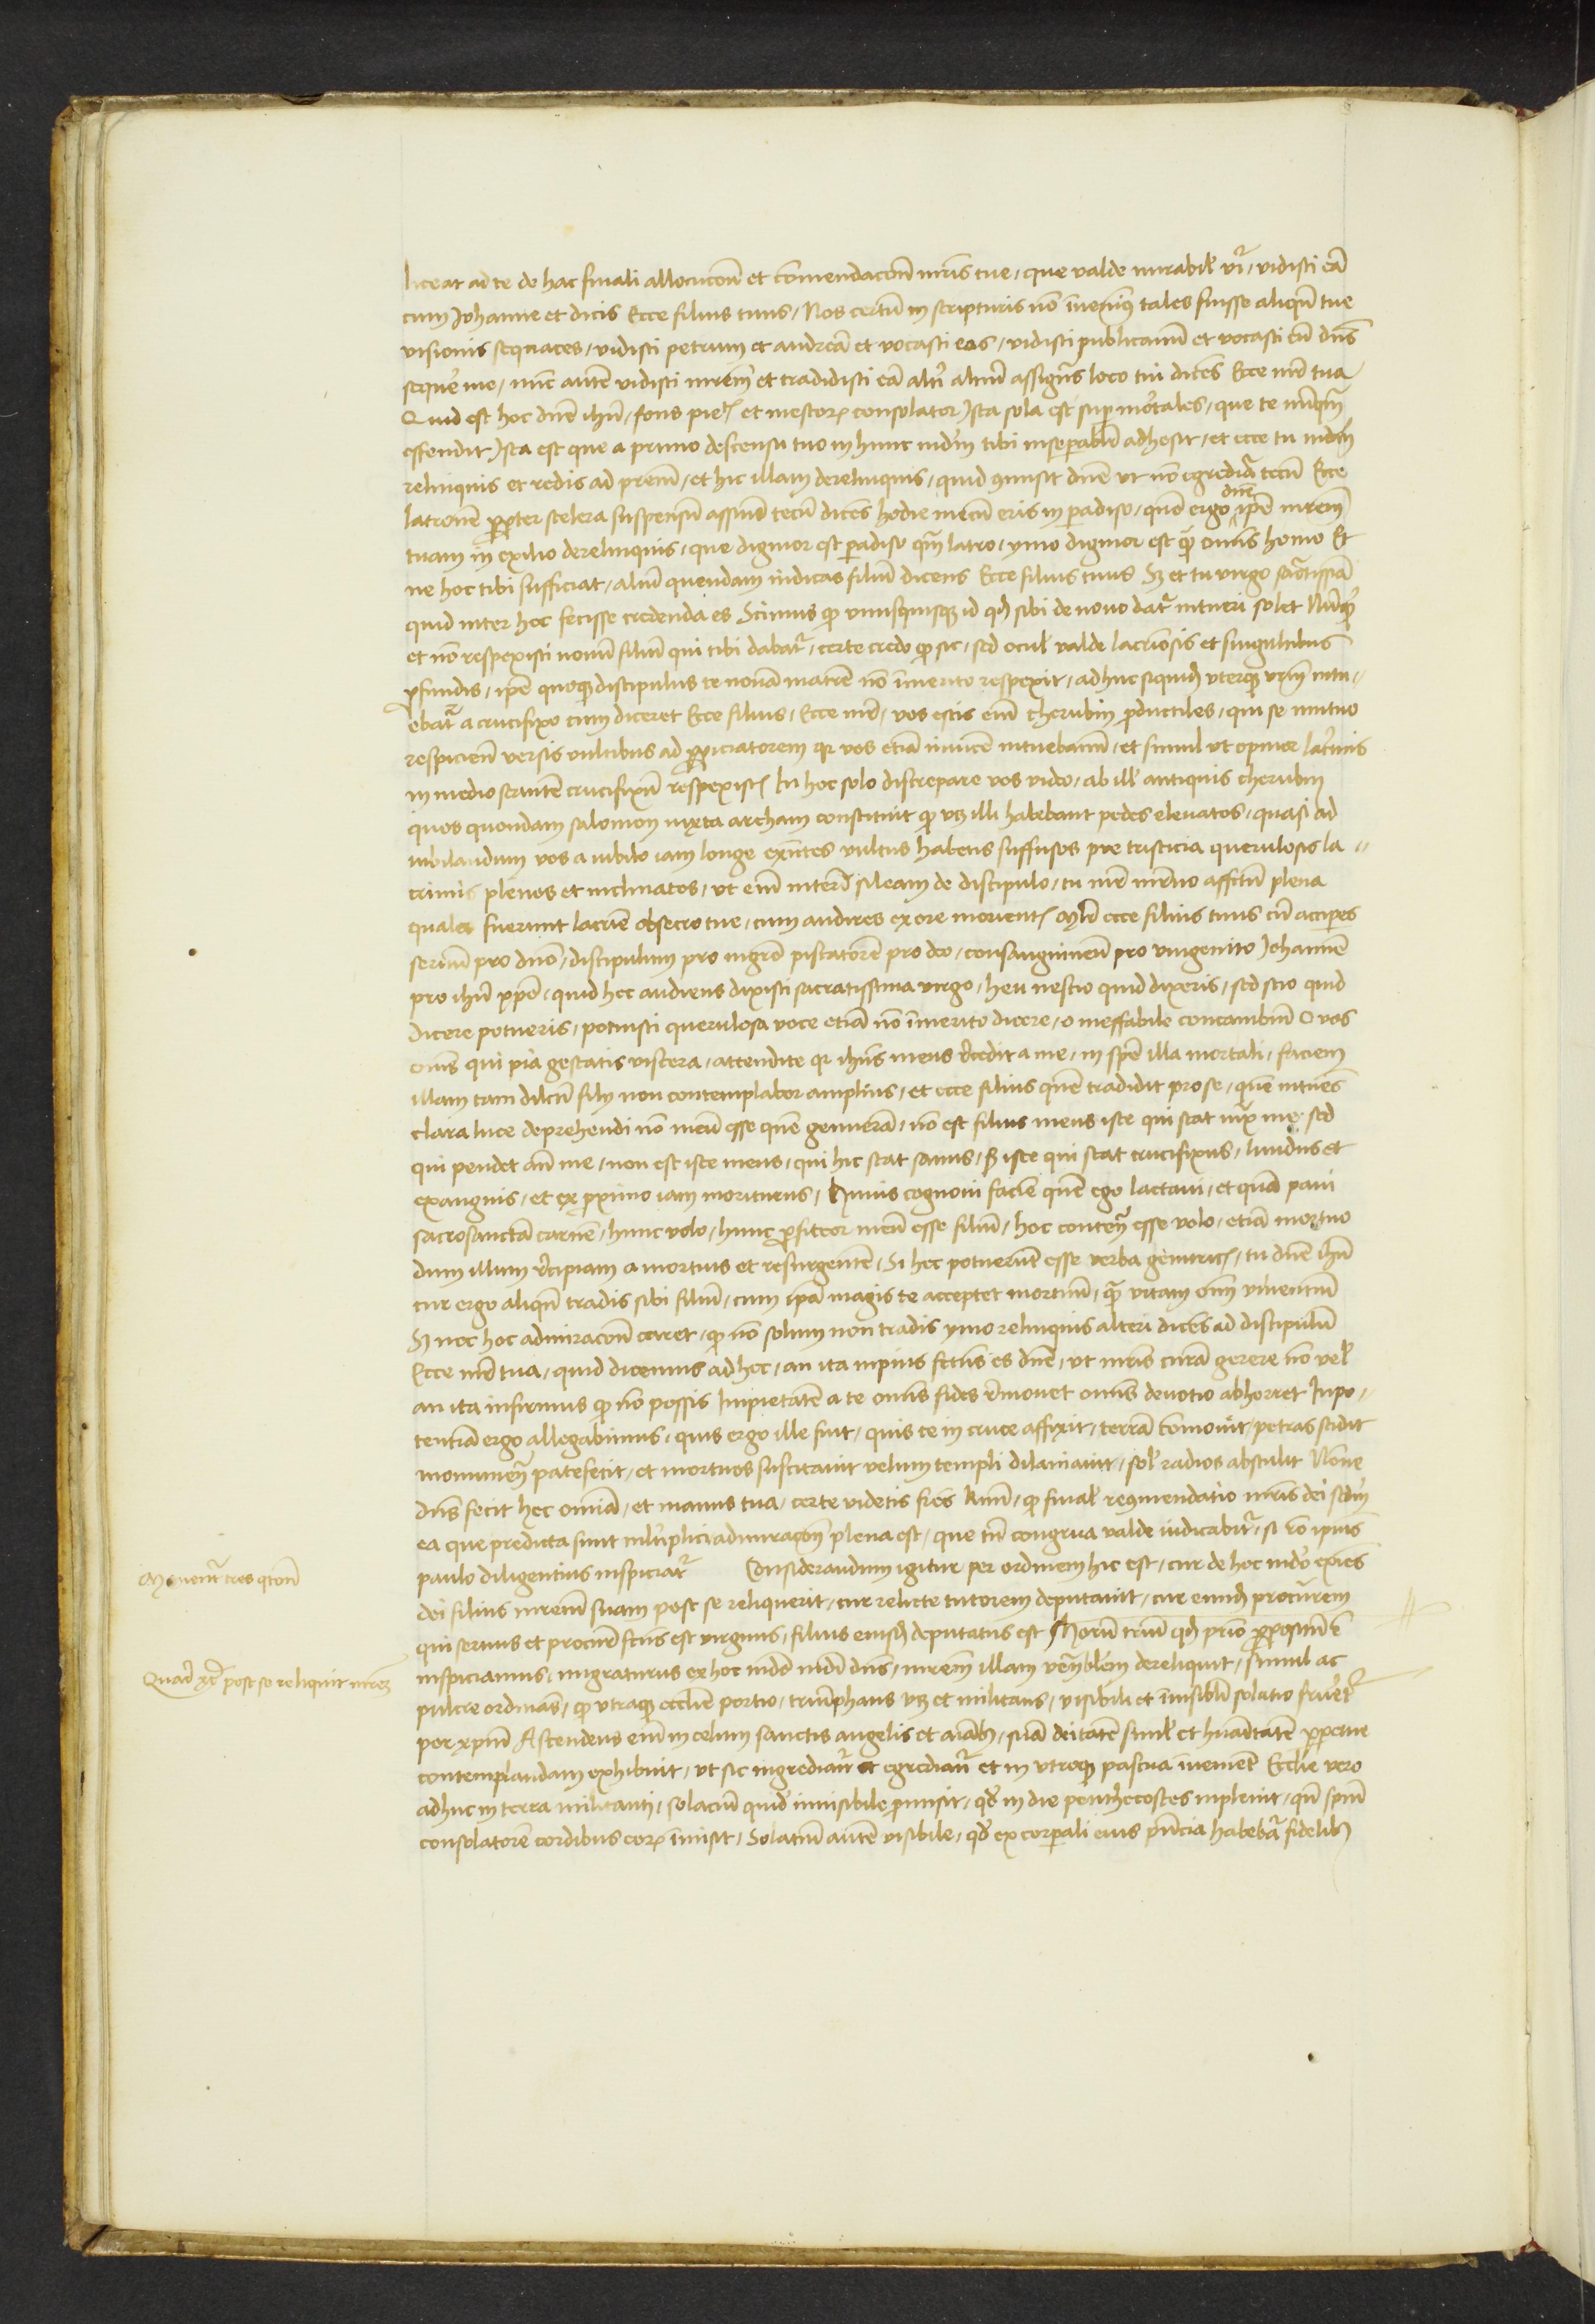 liceat ad te de hac finali allocucōe et cōmendacōe mr̄is tue, que valde mirabil' vr̄, vidisti eā
cum Johanne et dicis Ecce filius tuus, Nos certū in scripturis nō inuenim9 tales fuisse aliqn̄ tue
visionis sequaces, vidisti petrum et andreā et vocasti eos, vidisti publicanū et vocasti eū dn̄s
sequer̄ me, nūc autē vidisti mr̄em et tradidisti eā alt'i aliuū assignās loco tui dicēs Ecce mr̄ tua
Quid est hoc dn̄e ihū, fons piet̄ et mestor̄ consolator Ista sola est sup mōtales, que te nūqm̄
offendit Ista est que a primo descensu tuo in hunc mdm̄ tibi insepabilr̄ adhesit, et ecce tu mdm̄
relinquis et redis ad prēm, et hic illam derelinquis, quid 9misit dn̄e vt nō egrediār tecū Ecce
dn̄e
latronē ppter scelera suspensū assumis tecū dicēs hodie mecū eris in padiso, quō ergo ipē mr̄em
tuam in exilio derelinquis, que dignior est padiso qm̄ latro, ymo dignior est qm̄ omīs homo Et
ne hoc tibi sufficiat, aliū quendam indicas filiū dicens Ecce filius tuus Sz et tu virgo sāctissīa
quid inter hec fecisse credenda es Scimus qp vnusquisqz id qd sibi de nouo dat̄ intueri solet Nūqd
et nō respexisti nouū filiū qui tibi dabat̄, certe credo qp sic, sed ocul' valde lacrīosis et singultibus
pfundis, ipē quoqz discipulus te nouā matrē nō īmerito respexit, adhuc siquidē vterqz vr̄m intu-
ebat̄ a crucifixo cum diceret Ecce filius, Ecce mr̄, vos estis enī cherubin pductiles, qui se mutuo
respiciebāt versis vultibus ad ppiciatorem qz vos etiā inuicē intuebamī, et simul vt opinor lacrimis
in medio stantē crucifixū respexist̄ In hoc solo discrepare vos video, ab ill' antiquis cherubin
quos quondam salomon iuxta archam constituit qp vz illi habebant pedes eleuatos, quasi ad
iubilandum vos a iubilo iam longe exn̄tes vultus habetis suffusos pre tristicia querulosis la-
crimis plenos et inclinatos, vt enī interī sileam de discipulo, tu mr̄ mr̄no affctu plena
quales fuerunt lacrīe obsecro tue, cum audires ex ore morient̄ Mlr̄ ecce filius tuus cū acciperes
seruū pro dn̄o, discipulum pro mgrō piscatorē pro deo, consanguineū pro vnigenito Johannē
pro ihū xpō, quid hec audiens dixisti sacratissima virgo, heu nescio quid dixeris, sed scio quid
dicere potueris, potuisti querulosa voce etiā nō īmerito dicere, o ineffabile concambiū O vos
omīs qui pia gestatis viscera, attendite qz ihūs meus recedit a me, in spē illa mortali, faciem
illam tam dilcti filij non contemplabor amplius, et ecce filius quē tradidit pro se, quē intuens
clara luce deprehendi nō meū esse quē genuerā, nō est filius meus iste qui stat iuxta me, sed
qui pendet an̄ me, non est iste meus, qui hic stat sanus, s; iste qui stat crucifixus, liuidus et
exanguis, et ex pximo iam moriturus, Huius cognoui faciē quē ego lactaui, et quā paui
sacrosanctā carnē, hunc volo, hunc pfiteor meū esse filiū, hoc contenta esse volo, etiā mortuo
dum illum recipiam a mortuis et resurgentē, Si hec potuerūt esse verba genitric̄, tu dn̄e ihū
cur ergo aliqm̄ tradis sibi filiū, cum ipā magis te acceptet mortuū, qm̄ vitam omī viuentiū
Sz nec hoc admiracōe caret, qp nō solum non tradis ymo relinquis alteri dicēs ad discipulū
Ecce mr̄ tua, quid dicemus ad hec, an ita inpius fctūs es dn̄e, vt mr̄is curā gerere nō vel'
an ita infirmus qp nō possis Inpietatē a te omīs fides remouet omīs deuotio abhorret Inpo-
tentiā ergo allegabimus, quis ergo ille fuit, quis te in cruce affixit, terrā cōmouit, petras scidit
monumēta patefecit, et mortuos suscitauit velum templi dilaniauit, sol' radios abstulit Nōne
dn̄s fecit hec omīa, et manus tua, certe videtis frēs kmī, qp final' recōmendatio mr̄is dei scdm̄
ea que predicta sunt mltiplici admiracōe plena est, que tn̄ congrua valde iudicabit̄, si rō ipius
paulo diligentius inspiciat̄ Considerandum igitur per ordinem hic est, cur de hoc mdo exiēs
dei filius mr̄em suam post se reliquerit, cur relicte tutorem deputauit, cur eiusdē procutorem
qui seruus et procutor fctūs est virginis, filius eiusdē deputatus est Horū triū qd prīo ppositū ē
inspiciamus, migraturus ex hoc mdo mdi dn̄s, mr̄em illam venabilem dereliquit, simul ac
pulcre ordinās, qp vtraqz ecclīe portio, triūphans vz et militans, visibili et inuisibli solatio frueret̄
per xpm̄ Ascendens enī in celum sanctis angelis et aīabz, suā deitatē simul et humanitatē ppetue
contemplandam exhibuit, vt sic ingrediant̄ et egrediant̄ et in vtroqz pascua inueniēt Ecclīe vero
adhuc in terra militanti, solaciū quid' inuisibile pmisit, qd' in die penthecostes inpleuit, qn̄ spm̄
consolatorē cordibus eor̄ īmisit, Solatiū autē visibile, qd' ex corpali eius pn̄cia habebāt fidelibz
Mouent̄ tres qstiōes
Quar̄ xp̄s post se reliquit mr̄em